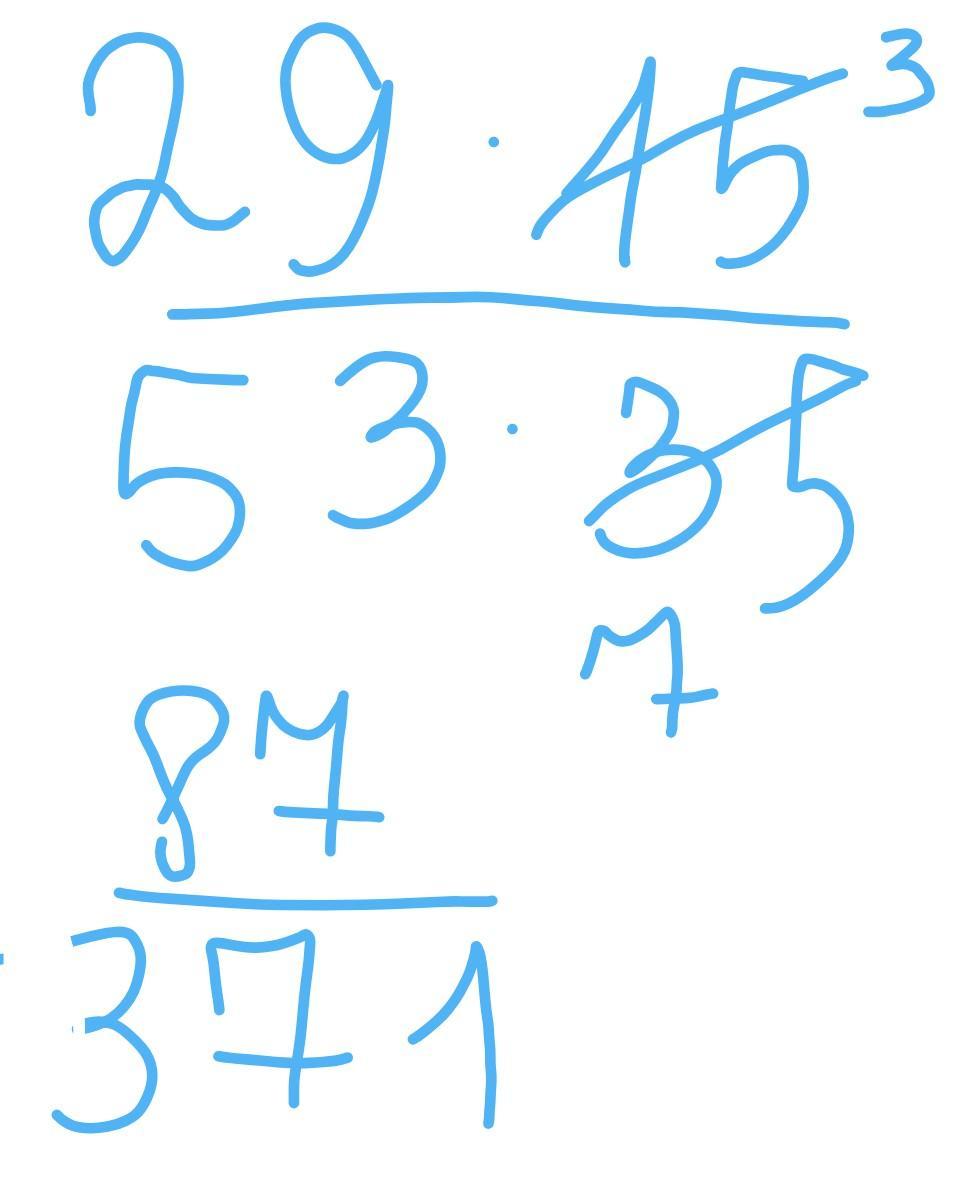 29 · 15 3
53 · 35
7
87
371